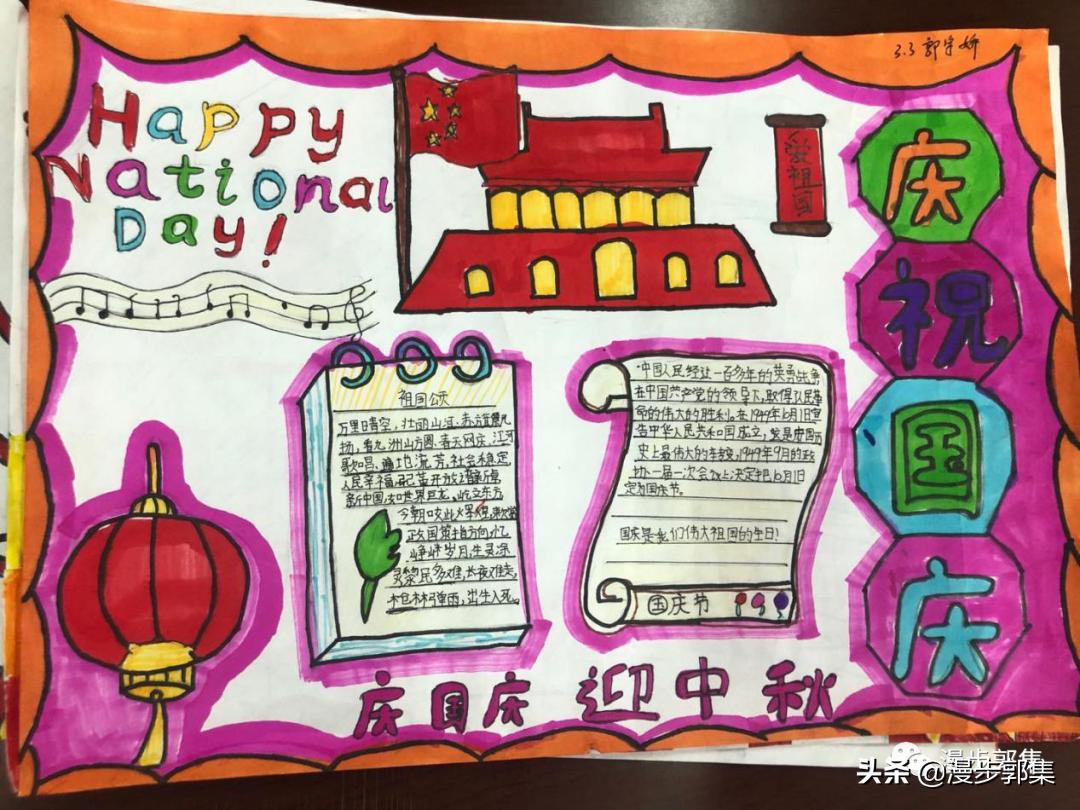 3.3 郭宇娇
Happy
National
Day!
爱祖国
庆
祝
国
庆
祖国颂
万里晴空,壮丽山河.赤旗飘
扬,看九洲山方圆.春天网庆,江河
歌如昌,遍地流芳,社会稳定,
人民幸福,改革开放谱新
新中国,如世界巨龙,屹立东方
今朝
政国策指方向,忆
峥嵘岁月,生灵涂
灵黎民多难,长夜难走,
枪林弹雨,出生入死。
中国人民经过一百多年的英勇战争
在中国共产党的领导下,取得人民革
命的伟大的胜利,在1949年10月1日宣
告中华人民共和国成立,这是中国历
史上最伟大的转变,1949年9月的政
协一届一次会议上决定把10月1日
定为国庆节。
国庆是我们伟大祖国的生日!
国庆节
庆国庆 迎中秋
漫步郭集
头条 @漫步郭集